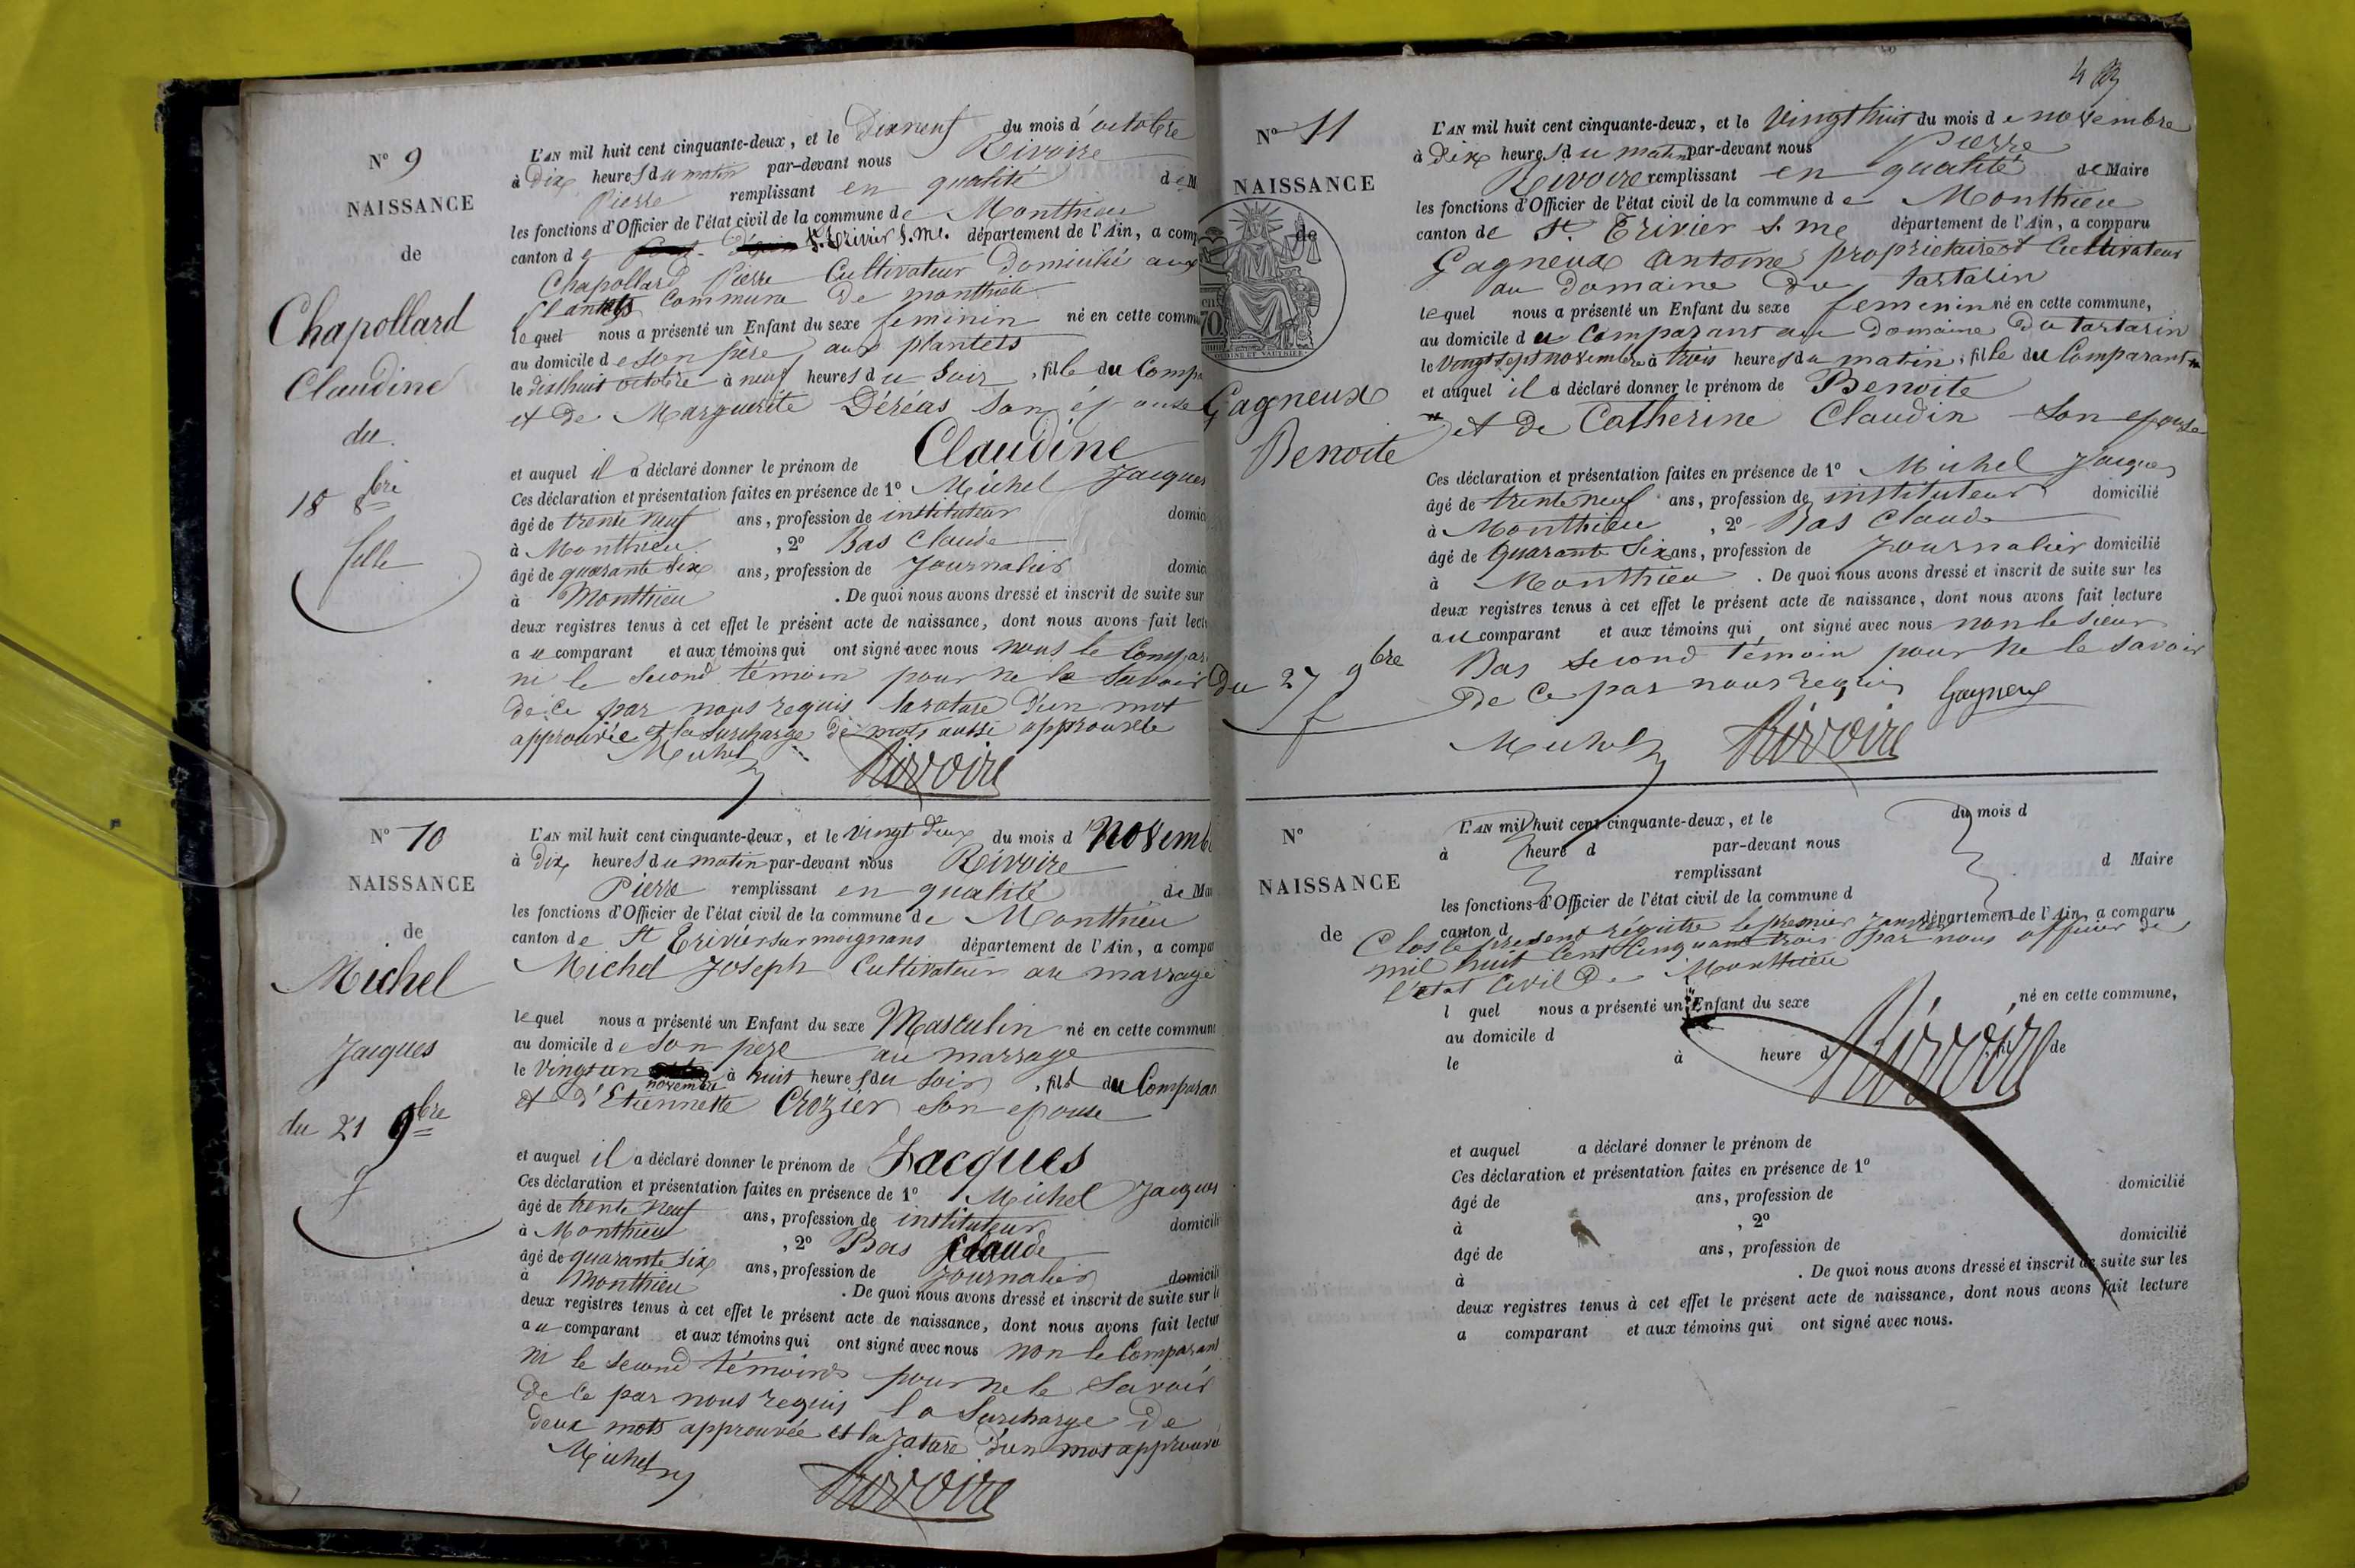 N° 9
NAISSANCE
de
Chapollard
Claudine
du
18 8bre
fille
L'AN mil huit cent cinquante-deux, et le dixneuf du mois d'octobre
à dix heures du matin par-devant nous Rivoire
Pierre remplissant en qualité de M
les fonctions d'Officier de l'état civil de la commune de Monthieu
canton de St. Trivier S. M. département de l'Ain, a comp
Chapollard Pierre Cultivateur domicilié aux
plantets Commune de monthieu
lequel nous a présenté un Enfant du sexe feminin né en cette commu
au domicile de son père, aux plantets
le dixhuit octobre à neuf heures du soir, fille du Compa
et de Marguerite Déréas son épouse
et auquel il a déclaré donner le prénom de Claudine
Ces déclaration et présentation faites en présence de 1° Michel Jacques
âgé de trente neuf ans, profession de instituteur domic
à Monthieu, 2° Bas Claude
âgé de quarante six ans, profession de Journalier domic
à Monthieu. De quoi nous avons dressé et inscrit de suite sur
deux registres tenus à cet effet le présent acte de naissance, dont nous avons fait lect
au comparant et aux témoins qui ont signé avec nous nons le Compar
ni le second témoin pour ne le savoir
de ce par nous requis la rature d'un mot
approuvée et la surcharge de mots aussi approuvée
Michel Rivoire
N° 10
NAISSANCE
de
Michel
Jacques
du 21 9bre
f
L'AN mil huit cent cinquante-deux, et le vingt deux du mois d novemb
à dix heures du matin par-devant nous Rivoire
Pierre remplissant en qualité de Mai
les fonctions d'Officier de l'état civil de la commune de Monthieu
canton de St Trivier sur moignans département de l'Ain, a compa
Michel Joseph Cultivateur au marrage
lequel nous a présenté un Enfant du sexe Masculin né en cette commune
au domicile de son père au marrage
le vingt un novembre à huit heures du soir, fils du Comparan
et d'Etiennette Crozier son epouse
et auquel il a déclaré donner le prénom de Jacques
Ces déclaration et présentation faites en présence de 1° Michel Jacques
âgé de trente neuf ans, profession de instituteur domicili
à Monthieu, 2° Bas Claude
âgé de quarante six ans, profession de Journalier domicili
à Monthieu. De quoi nous avons dressé et inscrit de suite sur l
deux registres tenus à cet effet le présent acte de naissance, dont nous avons fait lectur
au comparant et aux témoins qui ont signé avec nous non le Comparant
ni le second témoins pour ne le savoir
de ce par nous requis la surcharge de
deux mots approuvée et la rature d'un mot approuvé
Michel Rivoire
N° 11
NAISSANCE
de
70
Gagneux
Benoite
du 27 9bre
f
L'AN mil huit cent cinquante-deux, et le vingt huit du mois de novembre
à dix heures du matin par-devant nous Pierre
Rivoire remplissant en qualité de Maire
les fonctions d'Officier de l'état civil de la commune de Monthieu
canton de St. Trivier s. me département de l'Ain, a comparu
Gagneux Antoine propriétaire et Cultivateur
au domaine du tartarin
lequel nous a présenté un Enfant du sexe feminin né en cette commune,
au domicile du Comparant au domaine du tartarin
le vingt sept novembre à trois heures du matin, fille du Comparant
et auquel il a déclaré donner le prénom de Benoite
et de Catherine Claudin son epouse
Ces déclaration et présentation faites en présence de 1° Michel Jacques
âgé de trente neuf ans, profession de instituteur domicilié
à Monthieu, 2° Bas Claude
âgé de quarante six ans, profession de Journalier domicilié
à Monthieu. De quoi nous avons dressé et inscrit de suite sur les
deux registres tenus à cet effet le présent acte de naissance, dont nous avons fait lecture
au comparant et aux témoins qui ont signé avec nous non le sieur
Bas second témoin pour ne le savoir
de ce par nous requis Gagneux
Michel Rivoire
N°
NAISSANCE
de
L'AN mil huit cent cinquante-deux, et le du mois d
à heure d par-devant nous
remplissant d Maire
les fonctions d'Officier de l'état civil de la commune d
canton d département de l'Ain, a comparu
Clos le present régistre le premier janvier
mil huit cent cinquante trois par nous officier de
l'état civil de Monthieu
l quel nous a présenté un Enfant du sexe né en cette commune,
au domicile d
le à heure d , fil de
Rivoire
et auquel a déclaré donner le prénom de
Ces déclaration et présentation faites en présence de 1°
âgé de ans, profession de domicilié
à , 2°
âgé de ans, profession de domicilié
à . De quoi nous avons dressé et inscrit de suite sur les
deux registres tenus à cet effet le présent acte de naissance, dont nous avons fait lecture
a comparant et aux témoins qui ont signé avec nous.